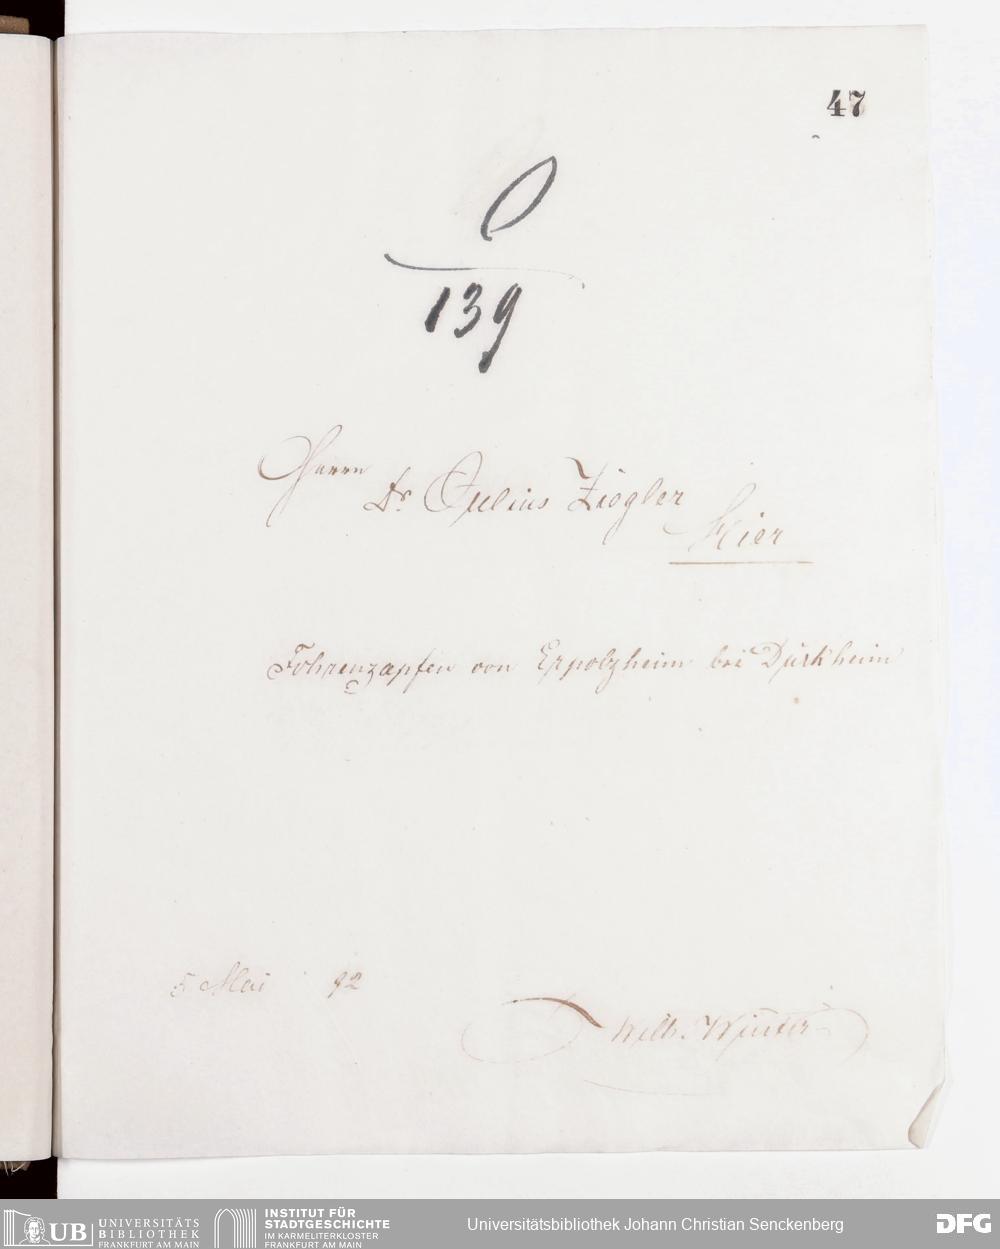 47
139
Herrn
Dr. Julius Ziegler
Hier
Föhrenzapfen von Erpolzheim bei Dürkheim
5 Mai 92
Wilh. Winter
UB UNIVERSITÄTS
BIBLIOTHEK
FRANKFURT AM MAIN
INSTITUT FÜR
STADTGESCHICHTE
IM KARMELITERKLOSTER
FRANKFURT AM MAIN
Universitätsbibliothek Johann Christian Senckenberg
DFG